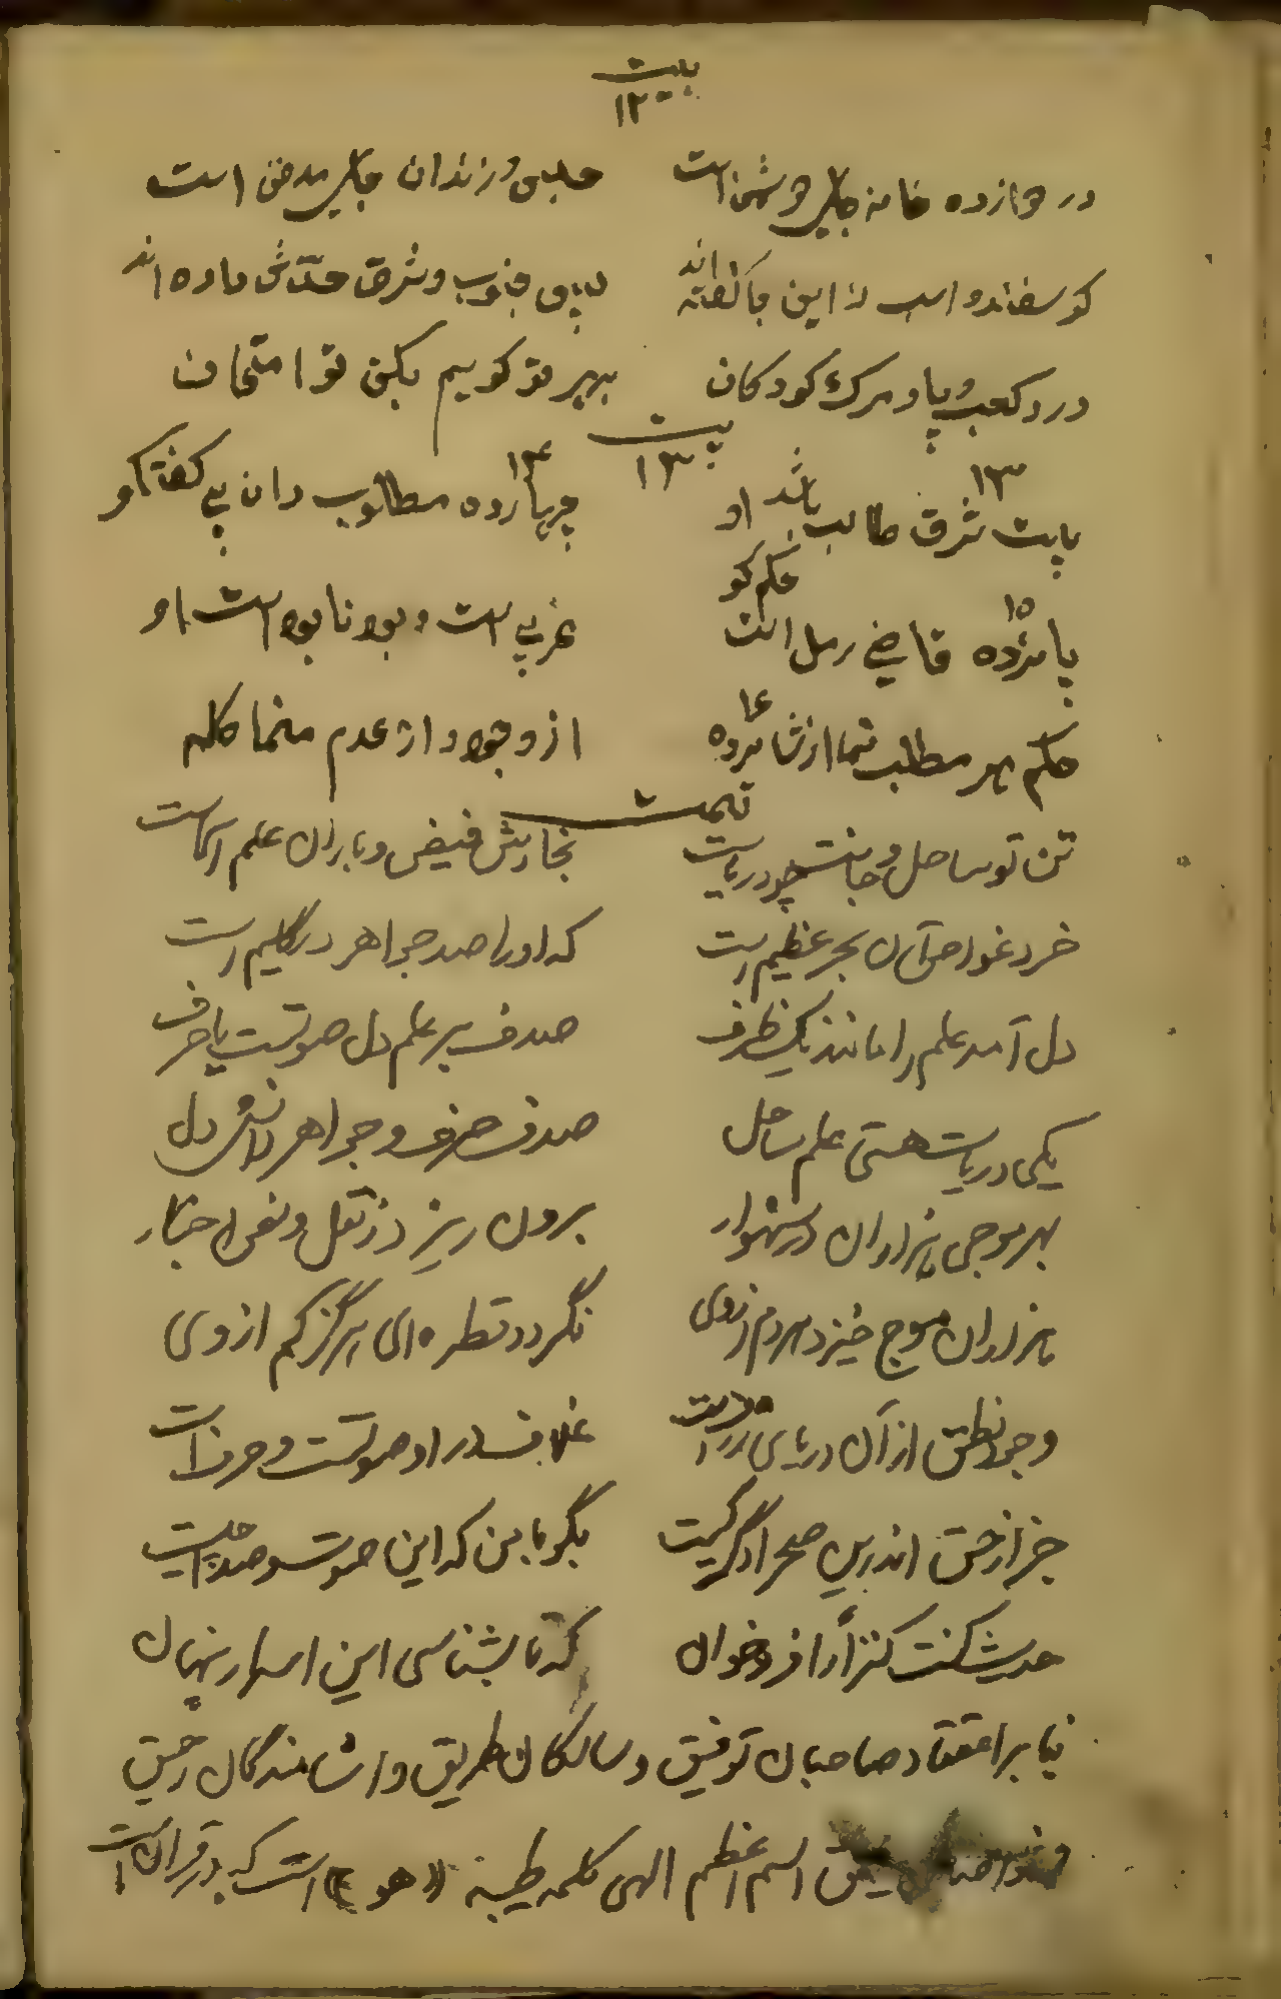 بیت
۱۲
در دوازده خانه جای دشمن است حبس و زندان جای مدفن است
گوسفند و اسب از این جا گفته اند سوی جنوب و شرق حدّش داده اند
درد کعب و پا و مرگ کودکان بهر تو گویم بکن تو امتحان
بیت
۱۳
بیت شرق طالب باشد او ۱۳ چهارده مطلوب دان بی گفتگو ۱۴
پانزده ۱۵ قاضی رمل است حکم گو غربی است و بود نابود است او
حکم هر مطلب نما از شانزده ۱۶ از وجود و از عدم منما گله
تمت
تن تو ساحل و جانت چو دریاست بخارش فیض و باران علم اسماست
خرد غواص آن بحر عظیم است که او را صد جواهر در گلیم است
دل آمد علم را مانند یک ظرف صدف بر علم دل صوتست با حرف
یکی دریاست هستی علم ساحل صدف حرف و جواهر دانش دل
بهر موجی هزاران در شهوار برون ریزد ز نقل و نص و اخبار
هزاران موج خیزد هر دم از وی نگردد قطره ای هرگز کم از وی
وجود نطق از آن دریای ژرف است غلاف در او صوتست و حرف است
جز از حق اندرین صحرا دگر کیست بگو با من که این صوت و صدا چیست
حدیث کنت کنزاً را فرو خوان که تا بشناسی این اسرار پنهان
بنا بر اعتقاد صاحبان توفیق و سالکان طریق و اشامندگان رحیق
اسم اعظم الهی کلمه طیبه «هو» است که در قرآن است